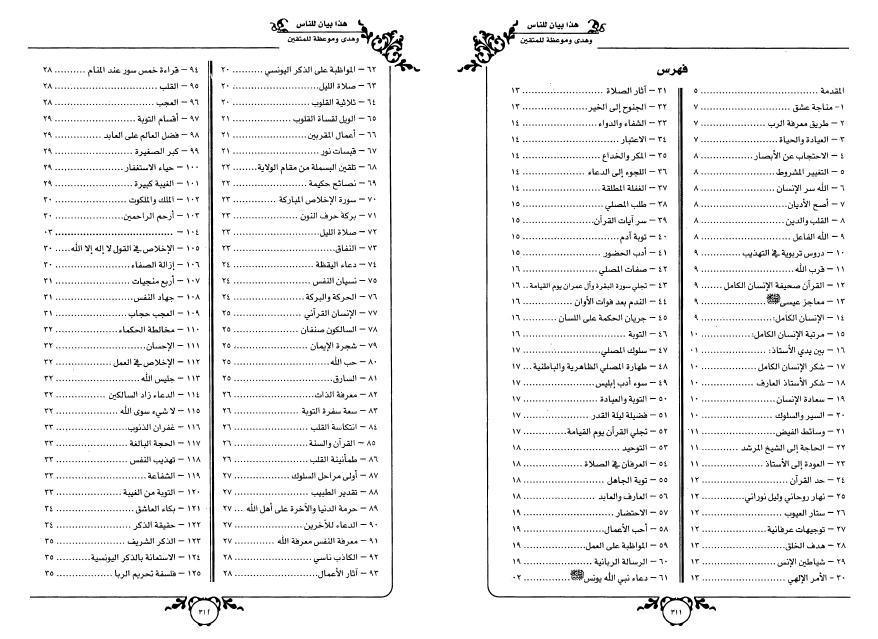 هذا بيان للناس
وهدى وموعظة للمتقين
فهرس
المقدمة ..... ٥
١- مناجة عشق ..... ٧
٢ - طريق معرفة الرب ..... ٧
٣ - العيادة والحياة ..... ٧
٤ - الاحتجاب عن الأبصار ..... ٨
٥ - التغيير المشروط ..... ٨
٦ - الله سر الإنسان ..... ٨
٧ - أصح الأديان ..... ٨
٨ - القلب والدين ..... ٨
٩ - الله الفاعل ..... ٨
١٠ - دروس تربوية في التهذيب ..... ٩
١١ - قرب الله ..... ٩
١٢ - القرآن صحيفة الإنسان الكامل ..... ٩
١٣ - معاجز عيسى ..... ٩
١٤ - الإنسان الكامل: ..... ٩
١٥ - مرتبة الإنسان الكامل: ..... ١٠
١٦ - بين يدي الأستاذ: ..... ٠١
١٧ - شكر الإنسان الكامل ..... ١٠
١٨ - شكر الأستاذ العارف ..... ١٠
١٩ - سعادة الإنسان ..... ١٠
٢٠ - السير والسلوك ..... ١٠
٢١ - وسائط الفيض ..... ١١
٢٢ - الحاجة إلى الشيخ المرشد ..... ١١
٢٣ - العودة إلى الأستاذ ..... ١١
٢٤ - حد القرآن ..... ١٢
٢٥ - نهار روحاني وليل نوراني ..... ١٢
٢٦ - ستار العيوب ..... ١٢
٢٧ - توجيهات عرفانية ..... ١٢
٢٨ - هدف الخلق ..... ١٣
٢٩ - شياطين الإنس ..... ١٣
٣٠ - الأمر الإلهي ..... ١٣
٣١ - آثار الصلاة ..... ١٣
٣٢ - الجنوح إلى الخير ..... ١٣
٣٣ - الشفاء والدواء ..... ١٤
٣٤ - الاعتبار ..... ١٤
٣٥ - المكر والخداع ..... ١٤
٣٦ - اللجوء إلى الدعاء ..... ١٤
٣٧ - الغفلة المطلقة ..... ١٤
٣٨ - طلب المصلي ..... ١٥
٣٩ - سر آيات القرآن ..... ١٥
٤٠ - توبة آدم ..... ١٥
٤١ - أدب الحضور ..... ١٥
٤٢ - صفات المصلي ..... ١٦
٤٣ - تجلي سورة البقرة وآل عمران يوم القيامة .. ١٦
٤٤ - الندم بعد فوات الأوان ..... ١٦
٤٥ - جريان الحكمة على اللسان ..... ١٦
٤٦ - التوبة ..... ١٦
٤٧ - سلوك المصلي ..... ١٧
٤٨ - طهارة المصلي الظاهرية والباطنية ... ١٧
٤٩ - سوء أدب إبليس ..... ١٧
٥٠ - التوبة والعيادة ..... ١٧
٥١ - فضيلة ليلة القدر ..... ١٧
٥٢ - تجلي القرآن يوم القيامة ..... ١٧
٥٣ - التوحيد ..... ١٨
٥٤ - العرفان في الصلاة ..... ١٨
٥٥ - توبة الجاهل ..... ١٨
٥٦ - العارف والعابد ..... ١٨
٥٧ - الاحتضار ..... ١٩
٥٨ - أحب الأعمال ..... ١٩
٥٩ - المواظبة على العمل ..... ١٩
٦٠ - الرسالة الربانية ..... ١٩
٦١ - دعاء نبي الله يونس ..... ٠٢
٣١١
هذا بيان للناس
وهدى وموعظة للمتقين
٦٢ - المواظبة على الذكر اليونسي ..... ٢٠
٦٣ - صلاة الليل ..... ٢٠
٦٤ - ثلاثية القلوب ..... ٢٠
٦٥ - الويل لقساة القلوب ..... ٢١
٦٦ - أعمال المقربين ..... ٢١
٦٧ - قبسات نور ..... ٢١
٦٨ - تلقين البسملة من مقام الولاية ..... ٢٢
٦٩ - نصائح حكيمة ..... ٢٢
٧٠ - سورة الإخلاص المباركة ..... ٢٣
٧١ - بركة حرف النون ..... ٢٣
٧٢ - صلاة الليل ..... ٢٣
٧٣ - النفاق ..... ٢٣
٧٤ - دعاء اليقظة ..... ٢٤
٧٥ - نسيان النفس ..... ٢٤
٧٦ - الحركة والبركة ..... ٢٤
٧٧ - الإنسان القرآني ..... ٢٥
٧٨ - السالكون صنفان ..... ٢٥
٧٩ - شجرة الإيمان ..... ٢٥
٨٠ - حب الله ..... ٢٥
٨١ - السارق ..... ٢٥
٨٢ - معرفة الذات ..... ٢٦
٨٣ - سعة سفرة التوبة ..... ٢٦
٨٤ - انتكاسة القلب ..... ٢٦
٨٥ - القرآن والسنة ..... ٢٦
٨٦ - طمأنينة القلب ..... ٢٦
٨٧ - أولى مراحل السلوك ..... ٢٧
٨٨ - تقدير الطبيب ..... ٢٧
٨٩ - حرمة الدنيا والآخرة على أهل الله ... ٢٧
٩٠ - الدعاء للآخرين ..... ٢٧
٩١ - معرفة النفس معرفة الله ..... ٢٧
٩٢ - الكاذب ناسي ..... ٢٨
٩٣ - آثار الأعمال ..... ٢٨
٩٤ - قراءة خمس سور عند المنام ..... ٢٨
٩٥ - القلب ..... ٢٨
٩٦ - العجب ..... ٢٨
٩٧ - أقسام التوبة ..... ٢٩
٩٨ - فضل العالم على العابد ..... ٢٩
٩٩ - كبر الصغيرة ..... ٢٩
١٠٠ - حياء الاستغفار ..... ٢٩
١٠١ - الغيبة كبيرة ..... ٢٩
١٠٢ - الملك والملكوت ..... ٣٠
١٠٣ - أرحم الراحمين ..... ٣٠
١٠٤ - ..... ٠٣
١٠٥ - الإخلاص في القول لا إله إلا الله ..... ٣٠
١٠٦ - إزالة الصفاء ..... ٣٠
١٠٧ - أربع منجيات ..... ٣١
١٠٨ - جهاد النفس ..... ٣١
١٠٩ - العجب حجاب ..... ٣١
١١٠ - مخالطة الحكماء ..... ٣٢
١١١ - الإحسان ..... ٣٢
١١٢ - الإخلاص في العمل ..... ٣٢
١١٣ - جليس الله ..... ٣٢
١١٤ - الدعاء زاد السالكين ..... ٣٢
١١٥ - لا شيء سوى الله ..... ٣٢
١١٦ - غفران الذنوب ..... ٣٣
١١٧ - الحجة البالغة ..... ٣٣
١١٨ - تهذيب النفس ..... ٣٣
١١٩ - الشفاعة ..... ٣٣
١٢٠ - التوبة من الغيبة ..... ٣٣
١٢١ - بكاء العاشق ..... ٣٤
١٢٢ - حقيقة الذكر ..... ٣٤
١٢٣ - الذكر الشريف ..... ٣٥
١٢٤ - الاستعانة بالذكر اليونسية ..... ٣٥
١٢٥ - فلسفة تحريم الربا ..... ٣٥